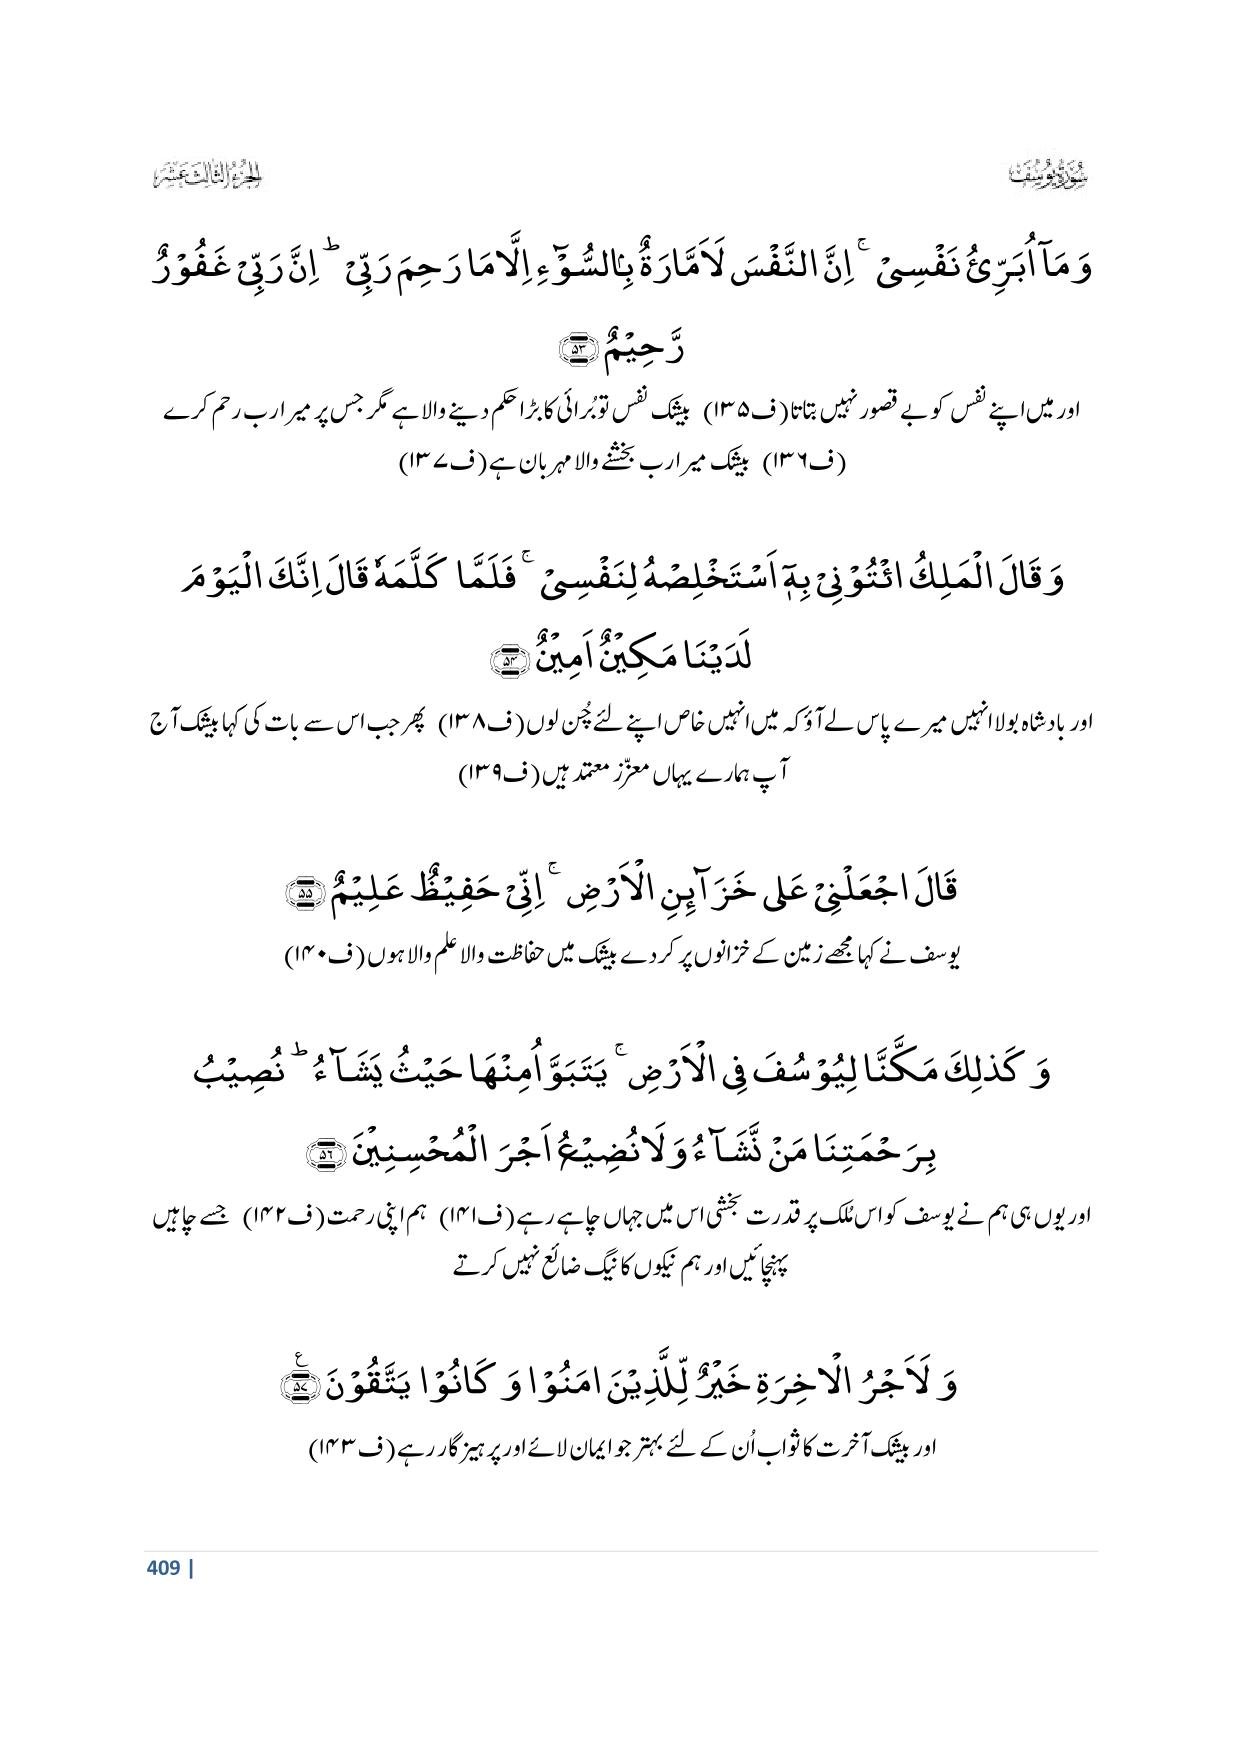 سُوْرَةُ يُوْسُف
الجزءُ الثالث عشر
وَ مَاۤ اُبَرِّئُ نَفْسِیْ ۚ اِنَّ النَّفْسَ لَاَمَّارَةٌۢ بِالسُّوْٓءِ اِلَّا مَا رَحِمَ رَبِّیْ ؕ اِنَّ رَبِّیْ غَفُوْرٌ
رَّحِیْمٌ ﴿۵۳﴾
اور میں اپنے نفس کو بے قصور نہیں بتاتا (ف۱۳۵) بیشک نفس تو بُرائی کا بڑا حکم دینے والا ہے مگر جس پر میرا رب رحم کرے
(ف۱۳۶) بیشک میرا رب بخشنے والا مہربان ہے (ف۱۳۷)
وَ قَالَ الْمَلِكُ ائْتُوْنِیْ بِهٖۤ اَسْتَخْلِصْهُ لِنَفْسِیْ ۚ فَلَمَّا كَلَّمَهٗ قَالَ اِنَّكَ الْیَوْمَ
لَدَیْنَا مَكِیْنٌ اَمِیْنٌ ﴿۵۴﴾
اور بادشاہ بولا انہیں میرے پاس لے آؤ کہ میں انہیں خاص اپنے لئے چُن لوں (ف۱۳۸) پھر جب اس سے بات کی کہا بیشک آج
آپ ہمارے یہاں معزّز معتمد ہیں (ف۱۳۹)
قَالَ اجْعَلْنِیْ عَلٰى خَزَآىِٕنِ الْاَرْضِ ۚ اِنِّیْ حَفِیْظٌ عَلِیْمٌ ﴿۵۵﴾
یوسف نے کہا مجھے زمین کے خزانوں پر کر دے بیشک میں حفاظت والا علم والا ہوں (ف۱۴۰)
وَ كَذٰلِكَ مَكَّنَّا لِیُوْسُفَ فِی الْاَرْضِ ۚ یَتَبَوَّاُ مِنْهَا حَیْثُ یَشَآءُ ؕ نُصِیْبُ
بِرَحْمَتِنَا مَنْ نَّشَآءُ وَ لَا نُضِیْعُ اَجْرَ الْمُحْسِنِیْنَ ﴿۵۶﴾
اور یوں ہی ہم نے یوسف کو اس مُلک پر قدرت بخشی اس میں جہاں چاہے رہے (ف۱۴۱) ہم اپنی رحمت (ف۱۴۲) جسے چاہیں
پہنچائیں اور ہم نیکوں کا نیگ ضائع نہیں کرتے
وَ لَاَجْرُ الْاٰخِرَةِ خَیْرٌ لِّلَّذِیْنَ اٰمَنُوْا وَ كَانُوْا یَتَّقُوْنَ ﴿۵۷﴾ ع
اور بیشک آخرت کا ثواب اُن کے لئے بہتر جو ایمان لائے اور پرہیزگار رہے (ف۱۴۳)
409 |